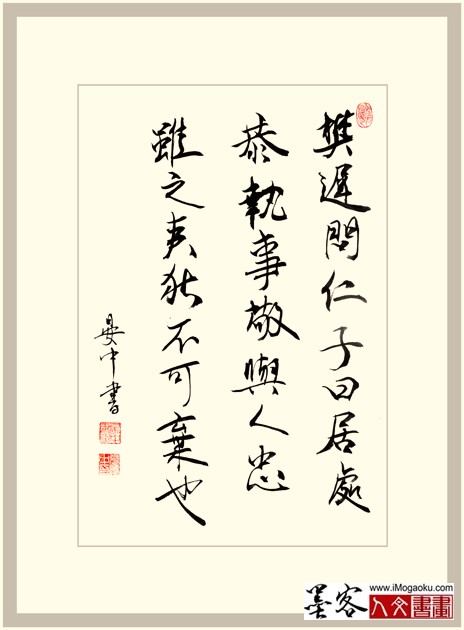 樊遲問仁子曰居處
恭執事敬與人忠
雖之夷狄不可棄也
晏中書
墨客
www.iMogaoku.com
人文書畫